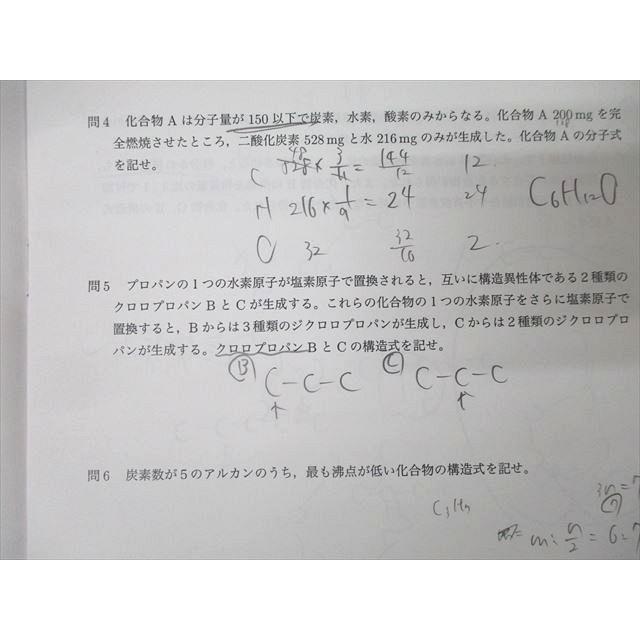 問4 化合物 A は分子量が 150 以下で炭素，水素，酸素のみからなる。化合物 A 200 mg を完
全燃焼させたところ，二酸化炭素 528 mg と水 216 mg のみが生成した。化合物 A の分子式
を記せ。
C 3 = 144 12
12
H 216 × 1/9 = 24 24 C6H12O
O 32 32 2
問5 プロパンの1つの水素原子が塩素原子で置換されると，互いに構造異性体である2種類の
クロロプロパン B と C が生成する。これらの化合物の1つの水素原子をさらに塩素原子で
置換すると，B からは3種類のジクロロプロパンが生成し，C からは2種類のジクロロプロ
パンが生成する。クロロプロパン B と C の構造式を記せ。
Ⓑ C-C-C Ⓒ C-C-C
↑ ↑
問6 炭素数が5のアルカンのうち，最も沸点が低い化合物の構造式を記せ。
3n=7
m: n/2 = 6:7